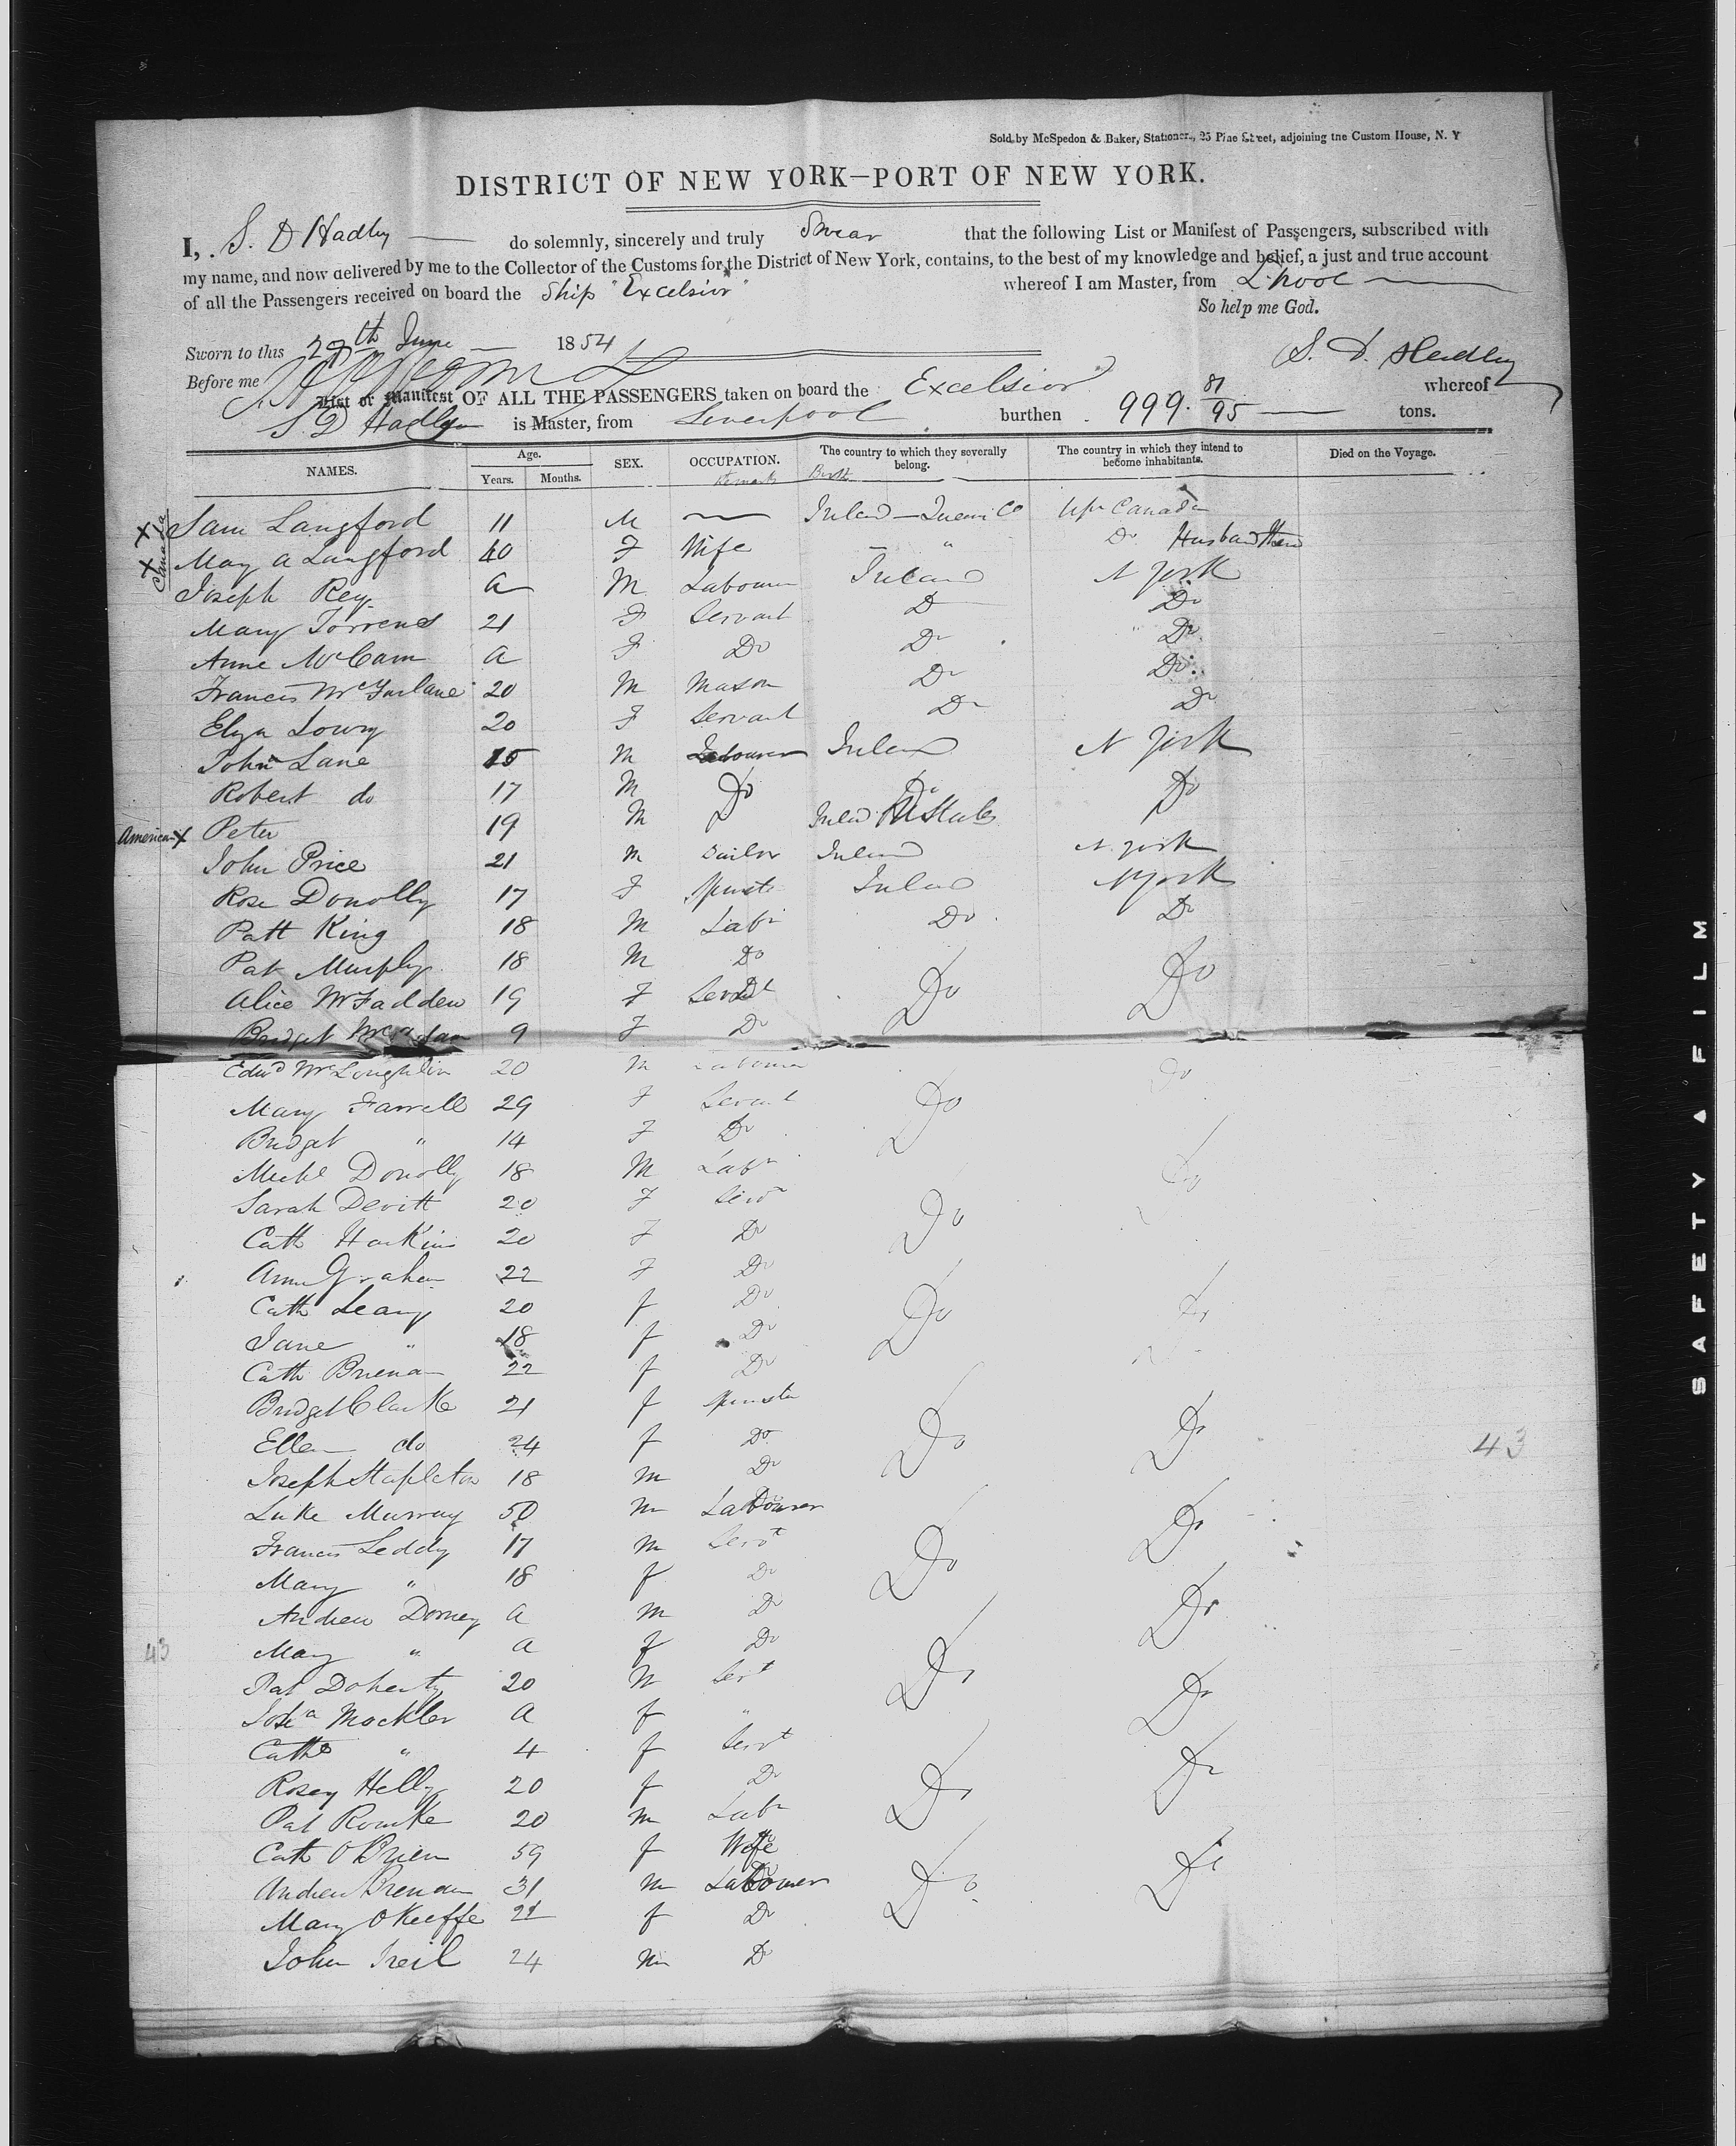 Sold by McSpedon & Baker, Stationers, 25 Pine Street, adjoining the Custom House, N. Y
DISTRICT OF NEW YORK—PORT OF NEW YORK.
I, S. D Hadley do solemnly, sincerely and truly Swear that the following List or Manifest of Passengers, subscribed with
my name, and now delivered by me to the Collector of the Customs for the District of New York, contains, to the best of my knowledge and belief, a just and true account
of all the Passengers received on board the Ship "Excelsior" whereof I am Master, from L'pool
So help me God.
Sworn to this 29th June 1854
S. D. Hadley
Before me
List or Manifest OF ALL THE PASSENGERS taken on board the Excelsior whereof
S D Hadley is Master, from Liverpool burthen 999 81/95 tons.
NAMES. Age. Years. Months. SEX. OCCUPATION. The country to which they severally belong. The country in which they intend to become inhabitants. Died on the Voyage.
Remarks Birth
Canada
X X Sam Langford 11 M — Ireland — Queens Co Upr Canada
X Mary A Langford 40 F Wife — " Do Husband there
Joseph Rey a M Labourer Ireland N York
Mary Torrens 21 F Servant D Do
Anne McCann a F Do Do Do
Francis McFarlane 20 M Mason Do Do
Eliza Lowry 20 F Servant Do Do
John Lane 15 M Labourer Ireland N York
Robert do 17 M Do Do Do
American X Peter 19 M Ireland U States
John Price 21 M Sailor Ireland N. York
Rose Donolly 17 F Spinstr Ireland N York
Patt King 18 M Labr Do Do
Pat Murphy 18 M Do
Alice McFadden 19 F Servt Do Do
Bridget 9 F Do
Edwd McLoughlin 20 M Labourer Do
Mary Farrell 29 F Servant Do
Bridget " 14 F Do
Michl Donolly 18 M Labr Do
Sarah Devitt 20 F Servt
Cath Harkins 20 F Do Do
Ann Graham 22 F Do
Cath Leary 20 f Do Do Do
Jane " 18 f Do
Cath Brenan 22 f Do
Bridget Clarke 21 f Spinster
Ellen do 24 f Do Do Do 43
Joseph Stapleton 18 m Do
Luke Murray 50 m Labourer
Francis Leddy 17 m Servt Do
Mary " 18 f Do Do
Andrew Dorney a m Do Do
43 Mary " a f Do
Pat Doherty 20 M Servt Do
Josha Mockler a f " Do
Cath " 4 f Servt
Rosey Helly 20 f Do Do Do
Pat Rourke 20 m Labr
Cath O'Brien 59 f Wife
Andrew Brenan 31 m Labourer Do Do
Mary O'Keeffe 21 f Do
John Neil 24 m Do
SAFETY FILM